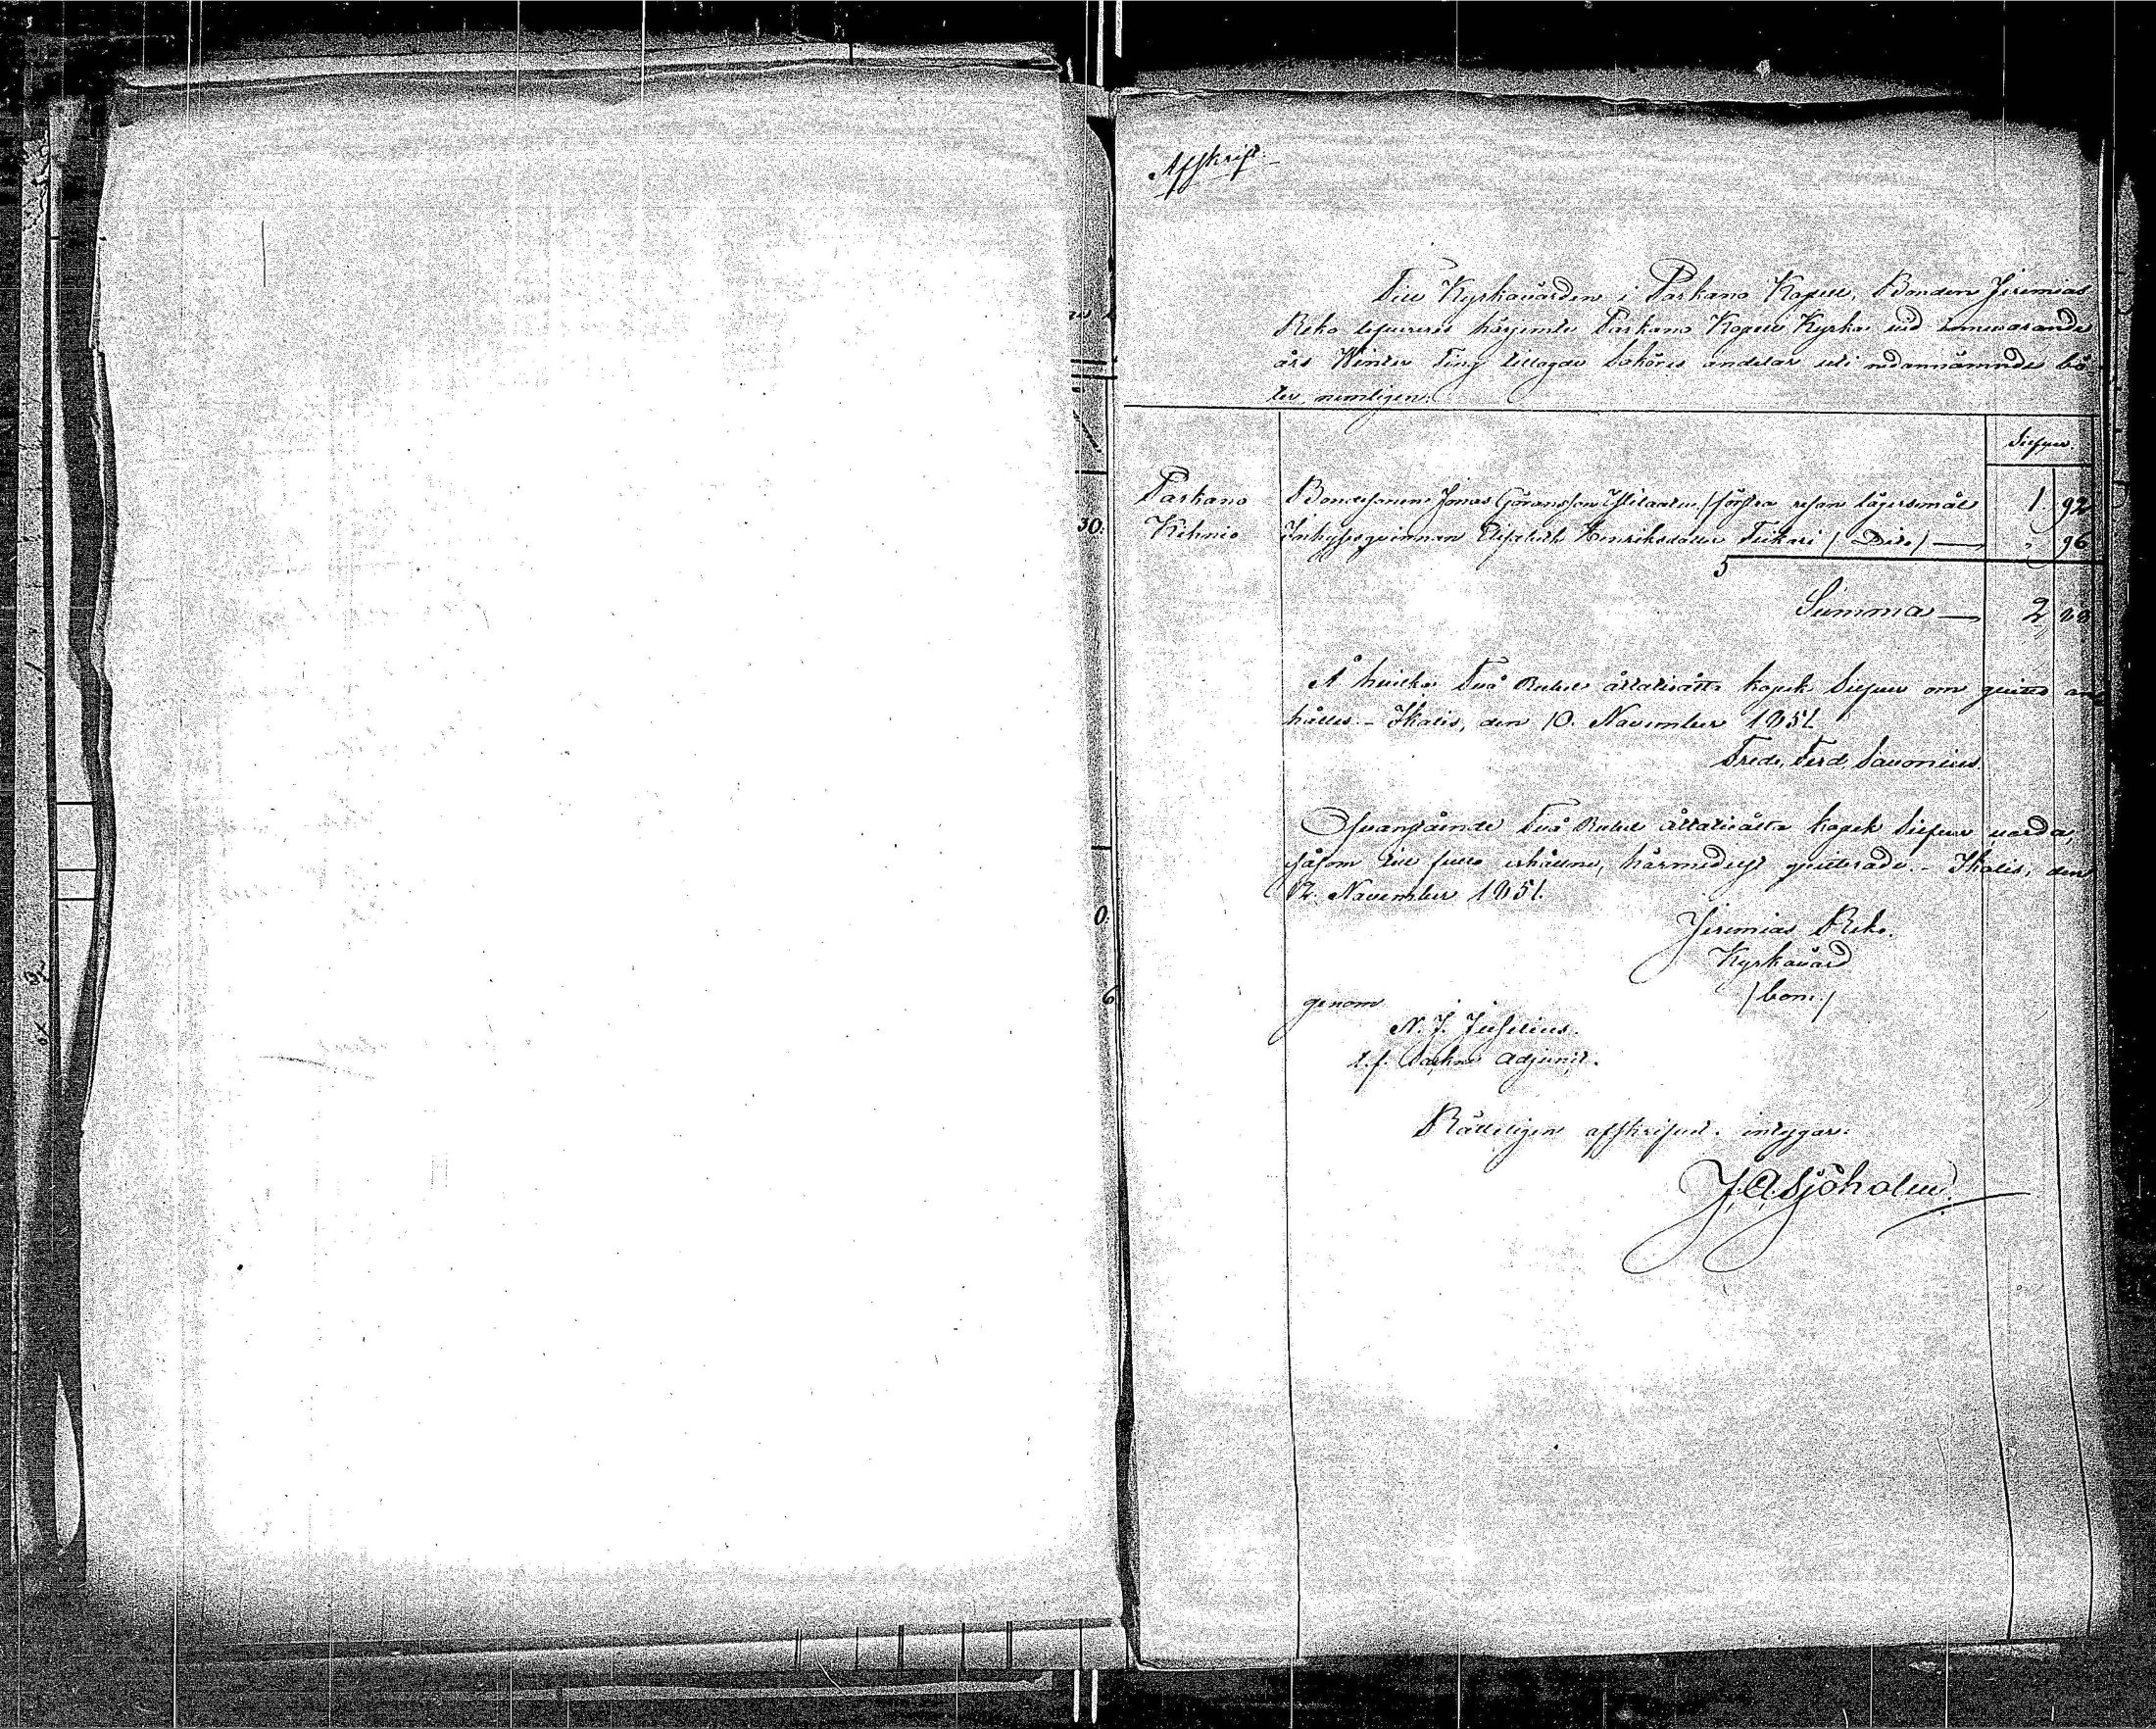 Afskrift.
Till Kyrkovärden i Parkano Kapell, Bonden Jeremias
Reko levereres härjemte Parkano Kapell Kyrka vid innevarande
års Winter Ting tillagde Saköres andelar uti nedannämnde bö-
ter, nemligen:
Silfver.
Parkano Bondesonen Jonas Göransson / första resan lägersmål 1. 92
Kihniö Inhysesqvinnan Elisabeth Henriksdotter / Dito / — " 96
Summa — 2 88
Å hvilka Två Rubel åttatioåtta kopek Silfver om qvitto an-
hålles. - Ikalis, den 10. November 1851.
Fredr. Ferd. Savonius.
Ofvanstående Två Rubel åttatioåtta kopek Silfver, varda,
såsom till fullo erhållne, härmedelst qvitterade. - Ikalis, den
12. November 1851.
Jeremias Reko.
Kyrkovärd
/bom:/
genom
N. J. Juselius.
t.f. Sockne adjunct.
Rätteligen afskrifvet, intygar:
J. A. Sjöholm.